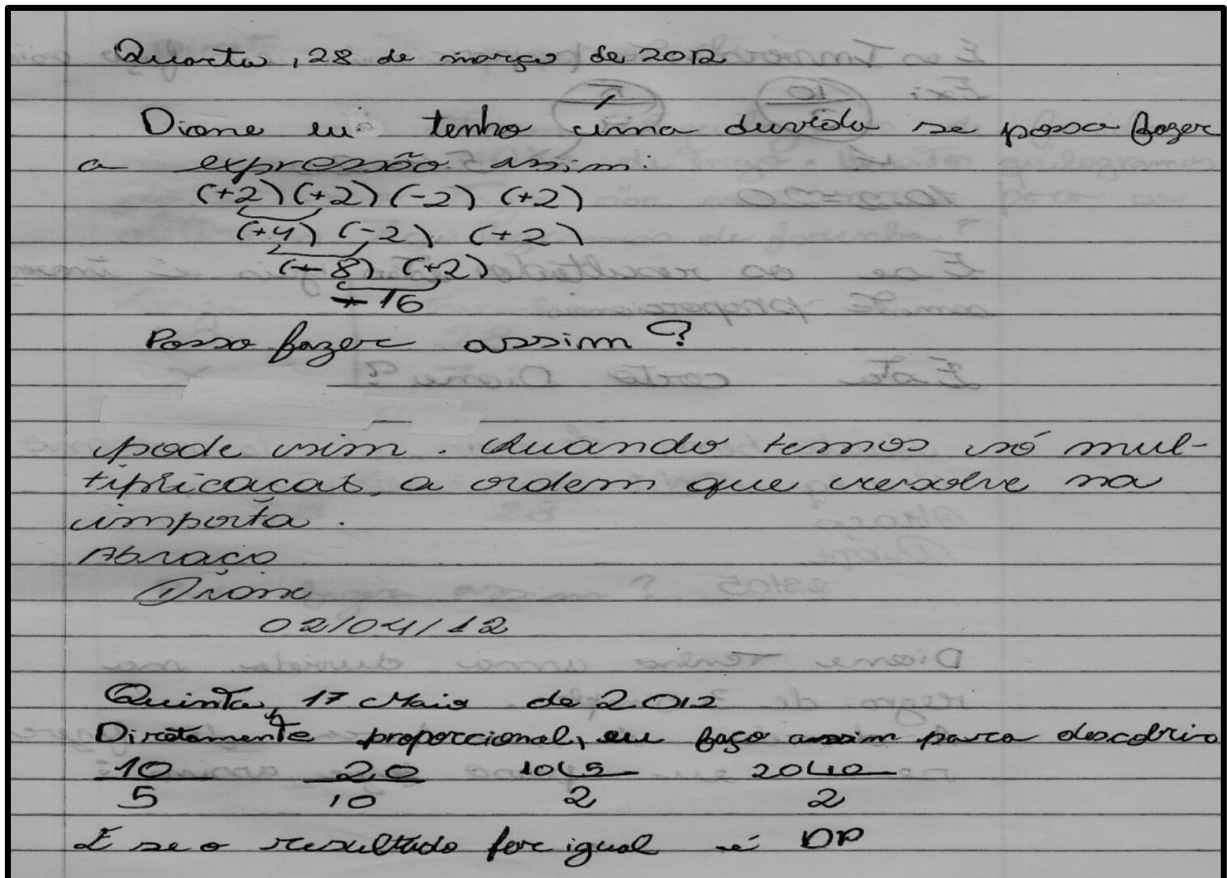 Quarta, 28 de março de 2012
Diane eu tenho uma duvida se posso fazer
a expressão assim:
(+2)(+2)(-2) (+2)
(+4) (-2) (+2)
(-8) (+2)
-16
Posso fazer assim?
pode sim. Quando temos só mul-
tiplicacas, a ordem que resolve na
importa.
Abraço
Diane
02/04/12
Quinta, 17 Maio de 2012
Diretamente proporcional, eu faço assim para descobrir
10 20 10⌊5 20⌊10
5 10 2 2
E se o resultado for igual é DP